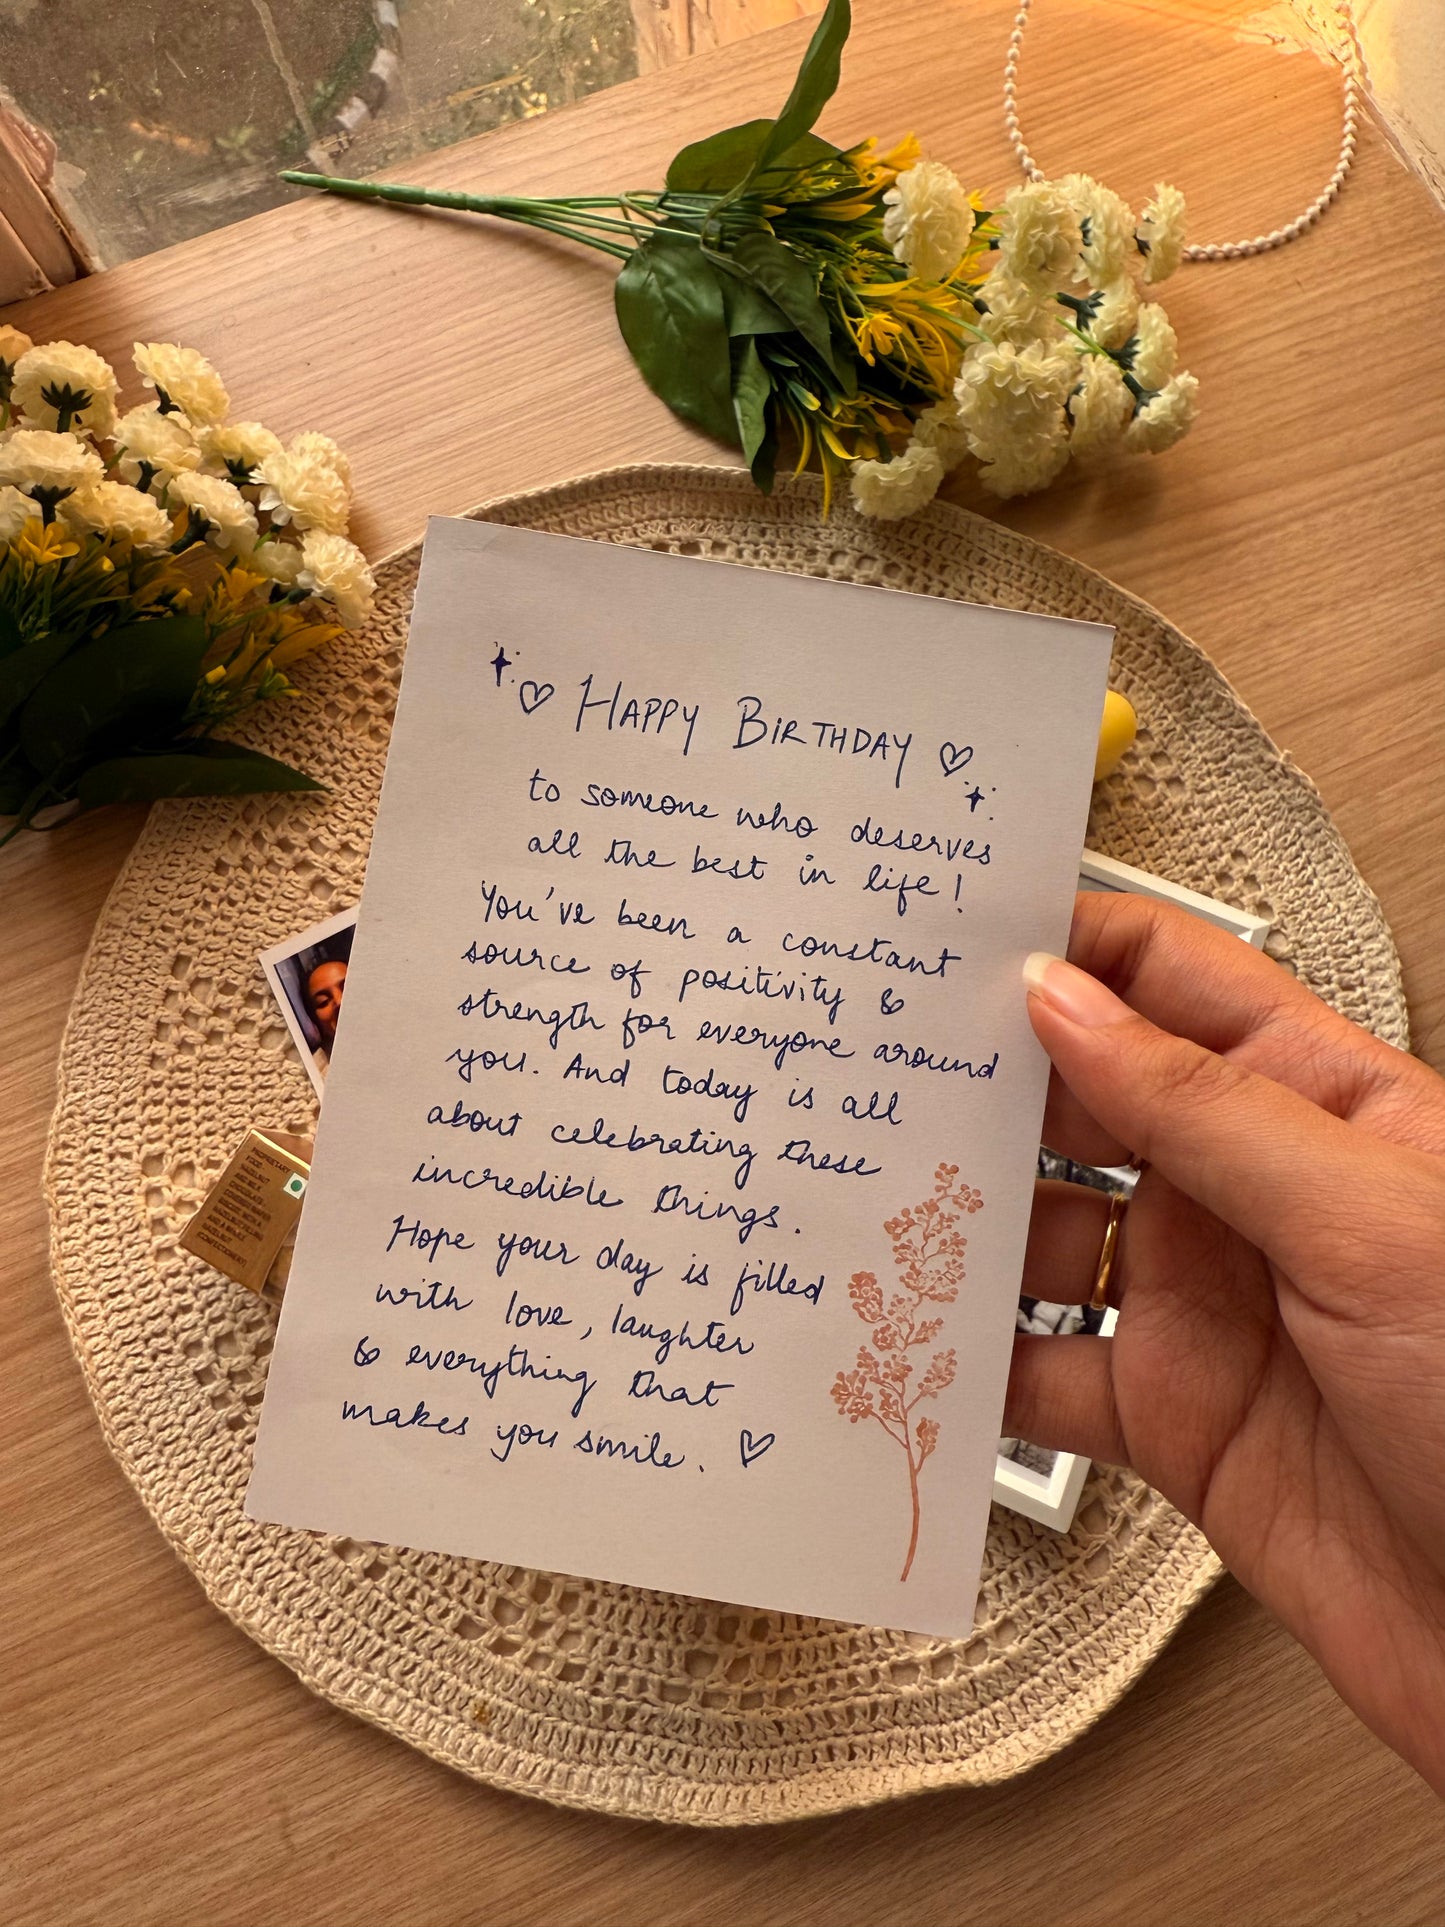 HAPPY BIRTHDAY
to someone who deserves
all the best in life!
You've been a constant
source of positivity &
strength for everyone around
you. And today is all
about celebrating these
incredible things.
Hope your day is filled
with love, laughter
& everything that
makes you smile.
PROPRIETARY
FOOD
CHOCOLATE
HAZELNUT
(CONFECTIONERY)